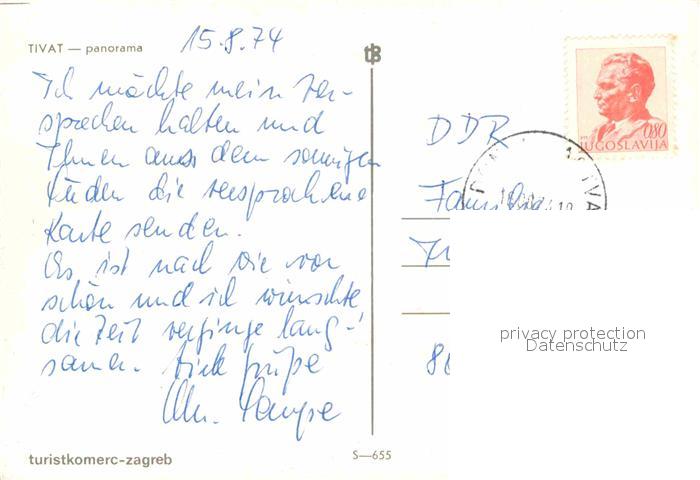 15.8.74
TIVAT — panorama
Ich möchte mein Ver-
sprechen halten und
Ihnen aus dem sonnigen
Süden die versprochene
Karte senden.
Es ist nach wie vor
schön und ich wünschte
die Zeit verginge lang-
samer. Viele Grüße
turistkomerc-zagreb
S—655
0.80
JUGOSLAVIJA
DDR
Familie
privacy protection
Datenschutz